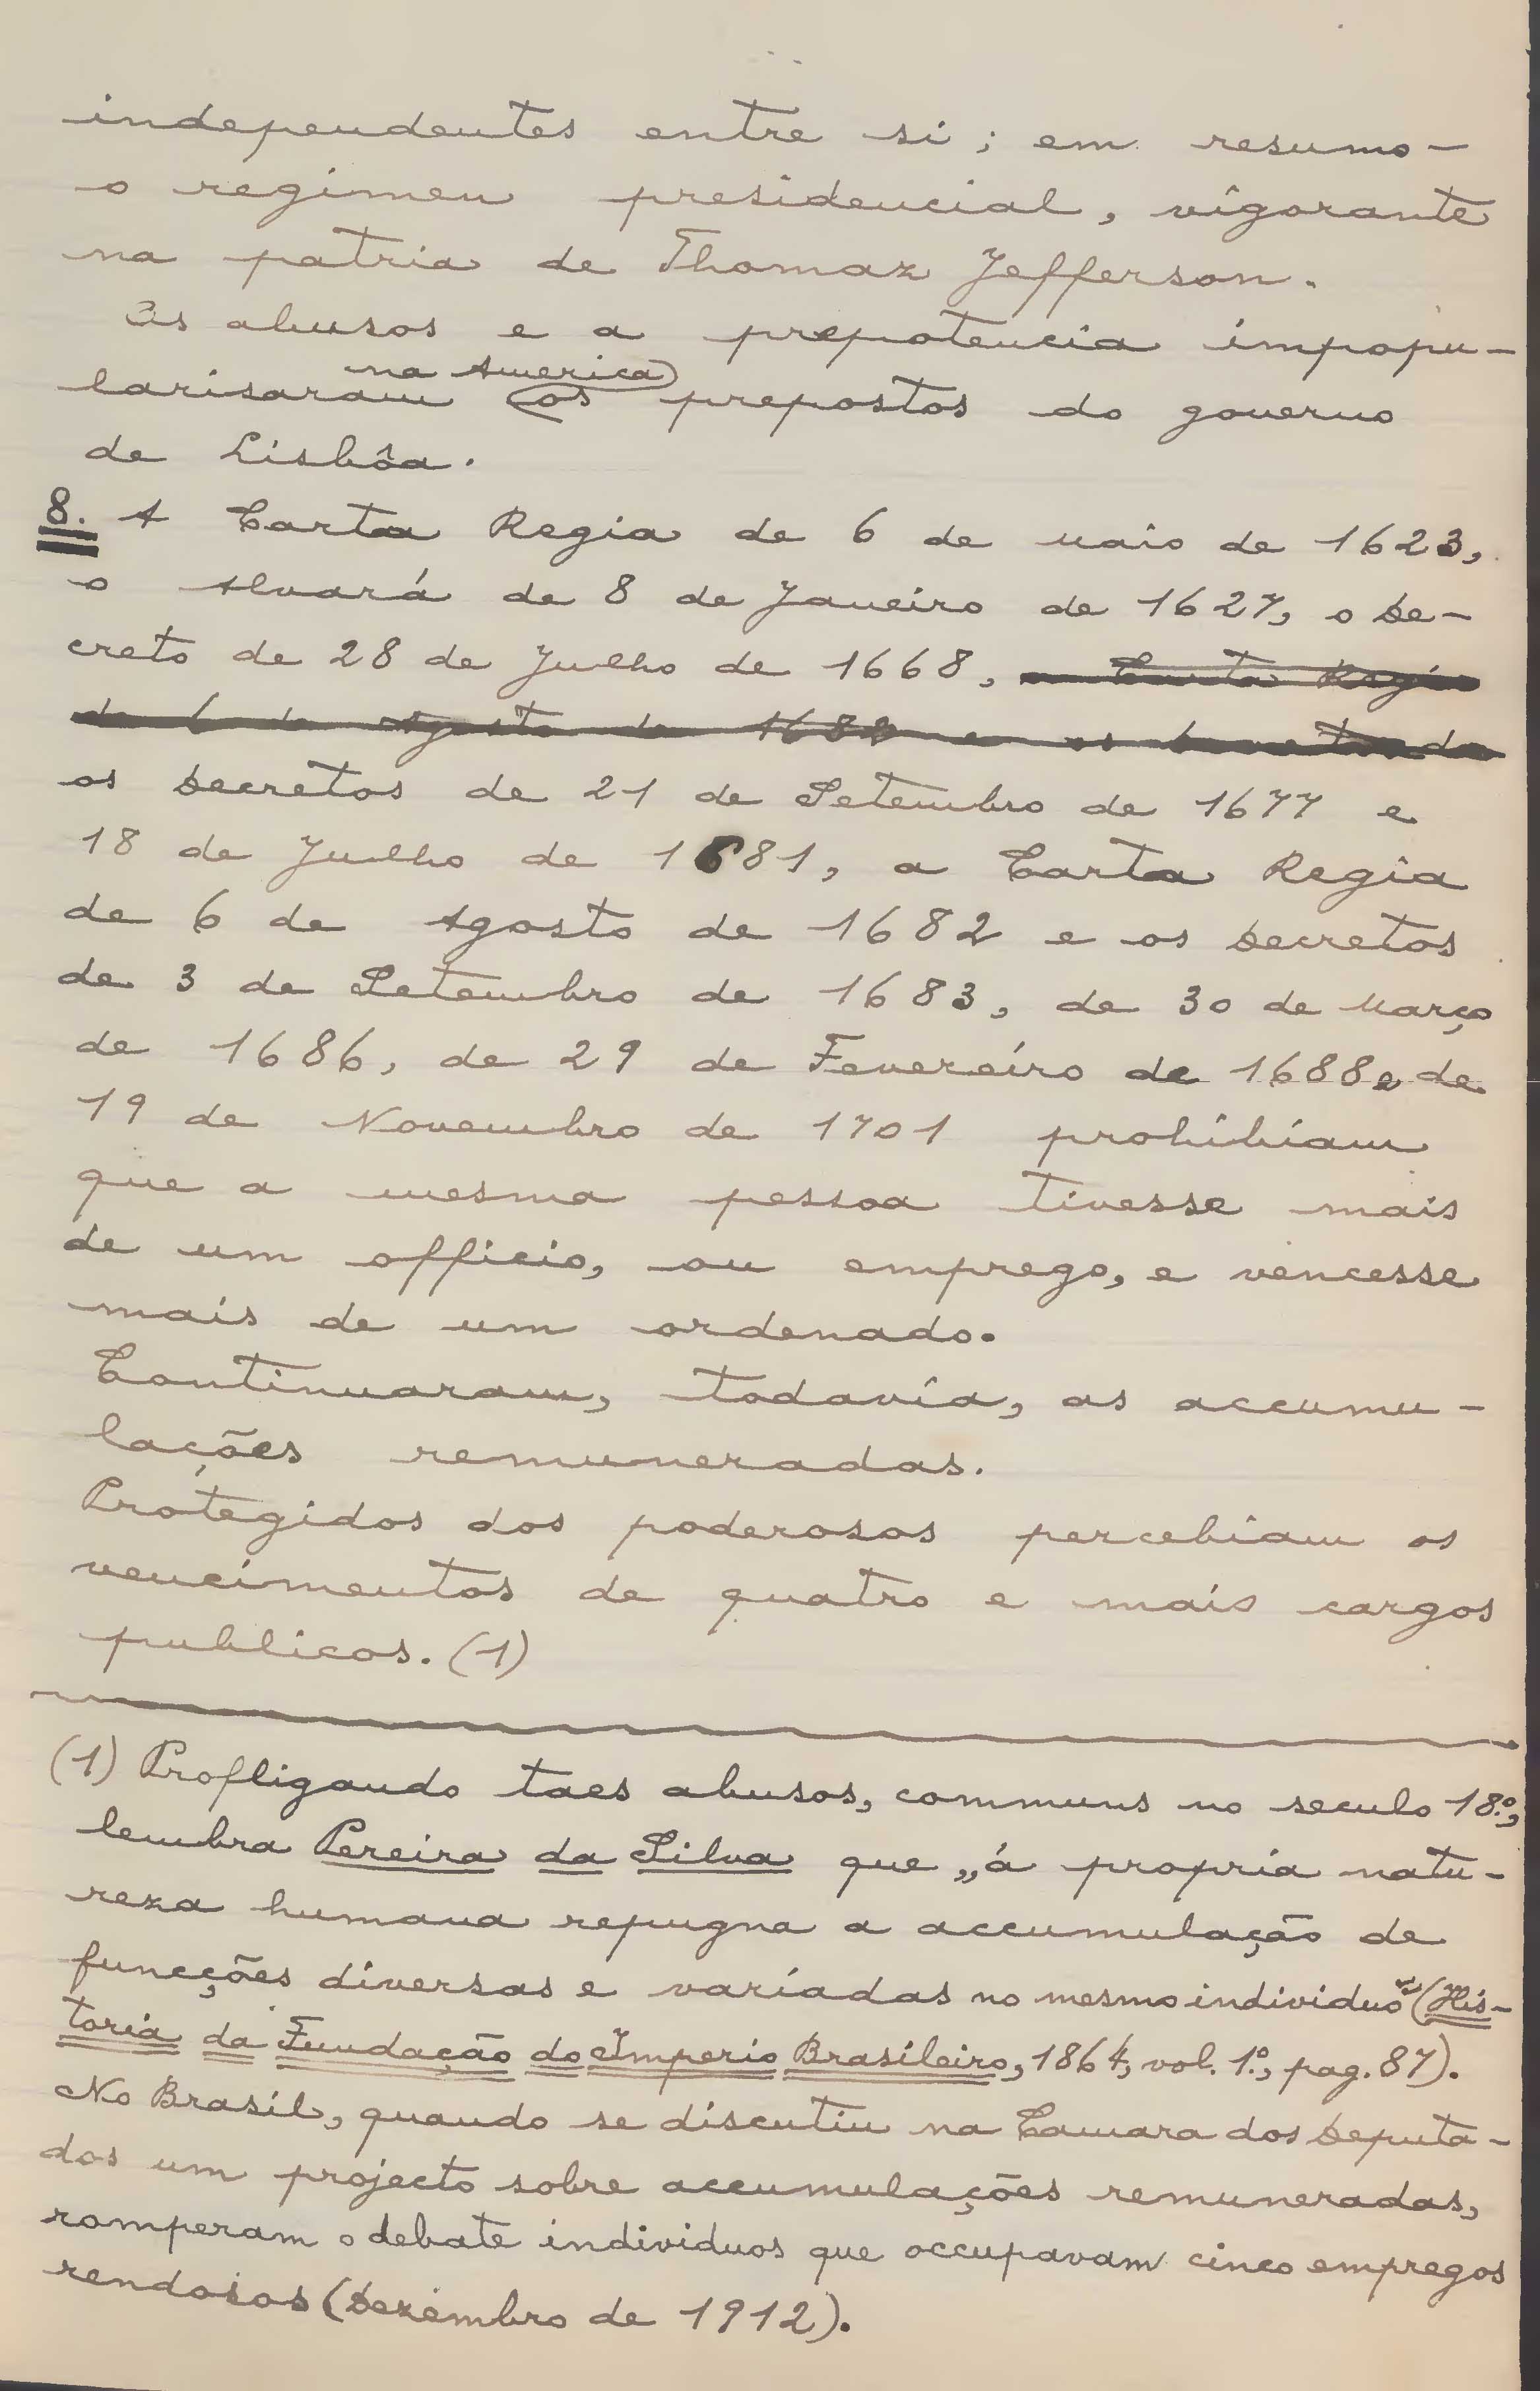 independentes entre si; em resumo —
o regimen presidencial, vigorante
na patria de Thomaz Jefferson.
Os abusos e a prepotencia impopu-
na America
larisaram os prepostos do governo
de Lisbôa.
8. A Carta Regia de 6 de Maio de 1623,
o Alvará de 8 de Janeiro de 1627, o De-
creto de 28 de Julho de 1668, a Carta Regia
de 6 de Agosto de 1682 e os Decretos de
os Decretos de 21 de Setembro de 1677 e
18 de Julho de 1681, a Carta Regia
de 6 de Agosto de 1682 e os Decretos
de 3 de Setembro de 1683, de 30 de Março
de 1686, de 29 de Fevereiro de 1688 e de
19 de Novembro de 1701 prohibiam
que a mesma pessoa tivesse mais
de um officio, ou emprego, e vencesse
mais de um ordenado.
Continuaram, todavia, as accumu-
lações remuneradas.
Protegidos dos poderosos percebiam os
vencimentos de quatro e mais cargos
publicos. (1)
(1) Profligando taes abusos, communs no seculo 18.º,
lembra Pereira da Silva que „á propria natu-
reza humana repugna a accumulação de
funcções diversas e variadas no mesmo individuo" (His-
toria da Fundação do Imperio Brasileiro, 1864, vol. 1.º, pag. 87).
No Brasil, quando se discutiu na Camara dos Deputa-
dos um projecto sobre accumulações remuneradas,
romperam o debate individuos que occupavam cinco empregos
rendosos (Dezembro de 1912).